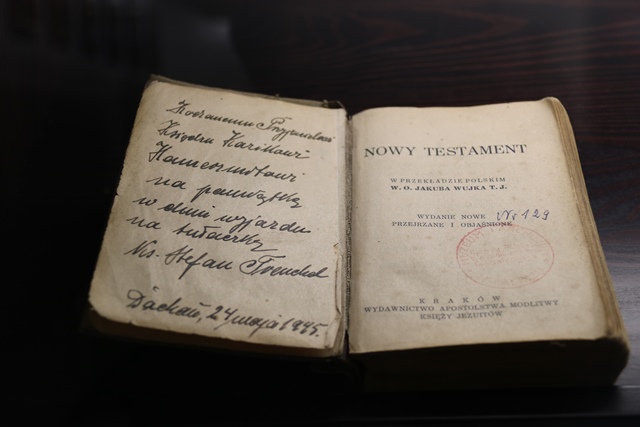 Kochanemu Przyjacielowi
Księdzu Kazikowi
Hameszmitowi
na pamiątkę
w dniu wyjazdu
na tułaczkę
Ks. Stefan
Dachau, 24 maja 1945.
NOWY TESTAMENT
W PRZEKŁADZIE POLSKIM
W. O. JAKUBA WUJKA T. J.
WYDANIE NOWE Nr 129
PRZEJRZANE I OBJAŚNIONE
KRAKÓW
WYDAWNICTWO APOSTOLSTWA MODLITWY
KSIĘŻY JEZUITÓW